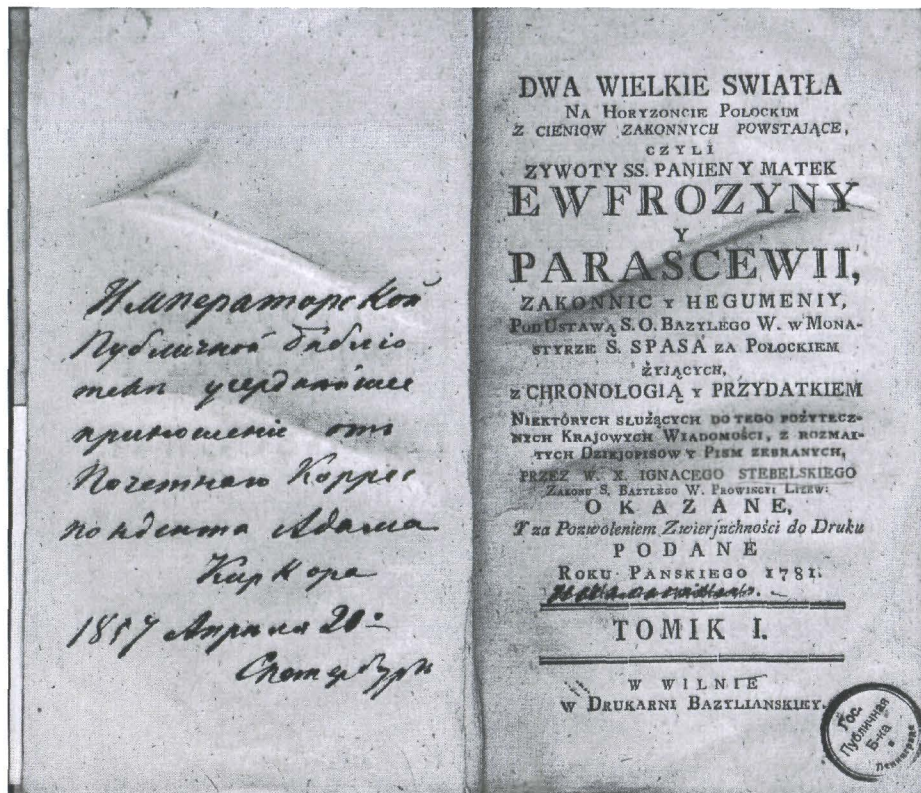 Императорской
Публичной библіо
теки усерднѣйшее
приношеніе отъ
Почетнаго Коррес
пондента Адама
Киркора
1857 Апрѣля 20
DWA WIELKIE SWIATŁA
NA HORYZONCIE POŁOCKIM
Z CIENIOW ZAKONNYCH POWSTAJĄCE,
CZYLI
ZYWOTY SS. PANIEN Y MATEK
EWFROZYNY
Y
PARASCEWII,
ZAKONNIC Y HEGUMENIY,
POD USTAWĄ S. O. BAZYLEGO W. W MONA-
STYRZE S. SPASA ZA POŁOCKIEM
ŻYJĄCYCH,
Z CHRONOLOGIĄ Y PRZYDATKIEM
NIEKTÓRYCH SŁUŻĄCYCH DO TEGO POŻYTECZ-
NYCH KRAJOWYCH WIADOMOŚCI, Z ROZMAI-
TYCH DZIEJOPISOW Y PISM ZEBRANYCH,
PRZEZ W. X. IGNACEGO STEBELSKIEGO
ZAKONU S. BAZYLEGO W. PROWINCYI LITEW:
OKAZANE,
Y za Pozwoleniem Zwierzchności do Druku
PODANE
ROKU PANSKIEGO 1781.
TOMIK I.
W WILNIE
W DRUKARNI BAZYLIANSKIEY.
Гос.
Публичная
Б-ка
в
Ленинграде